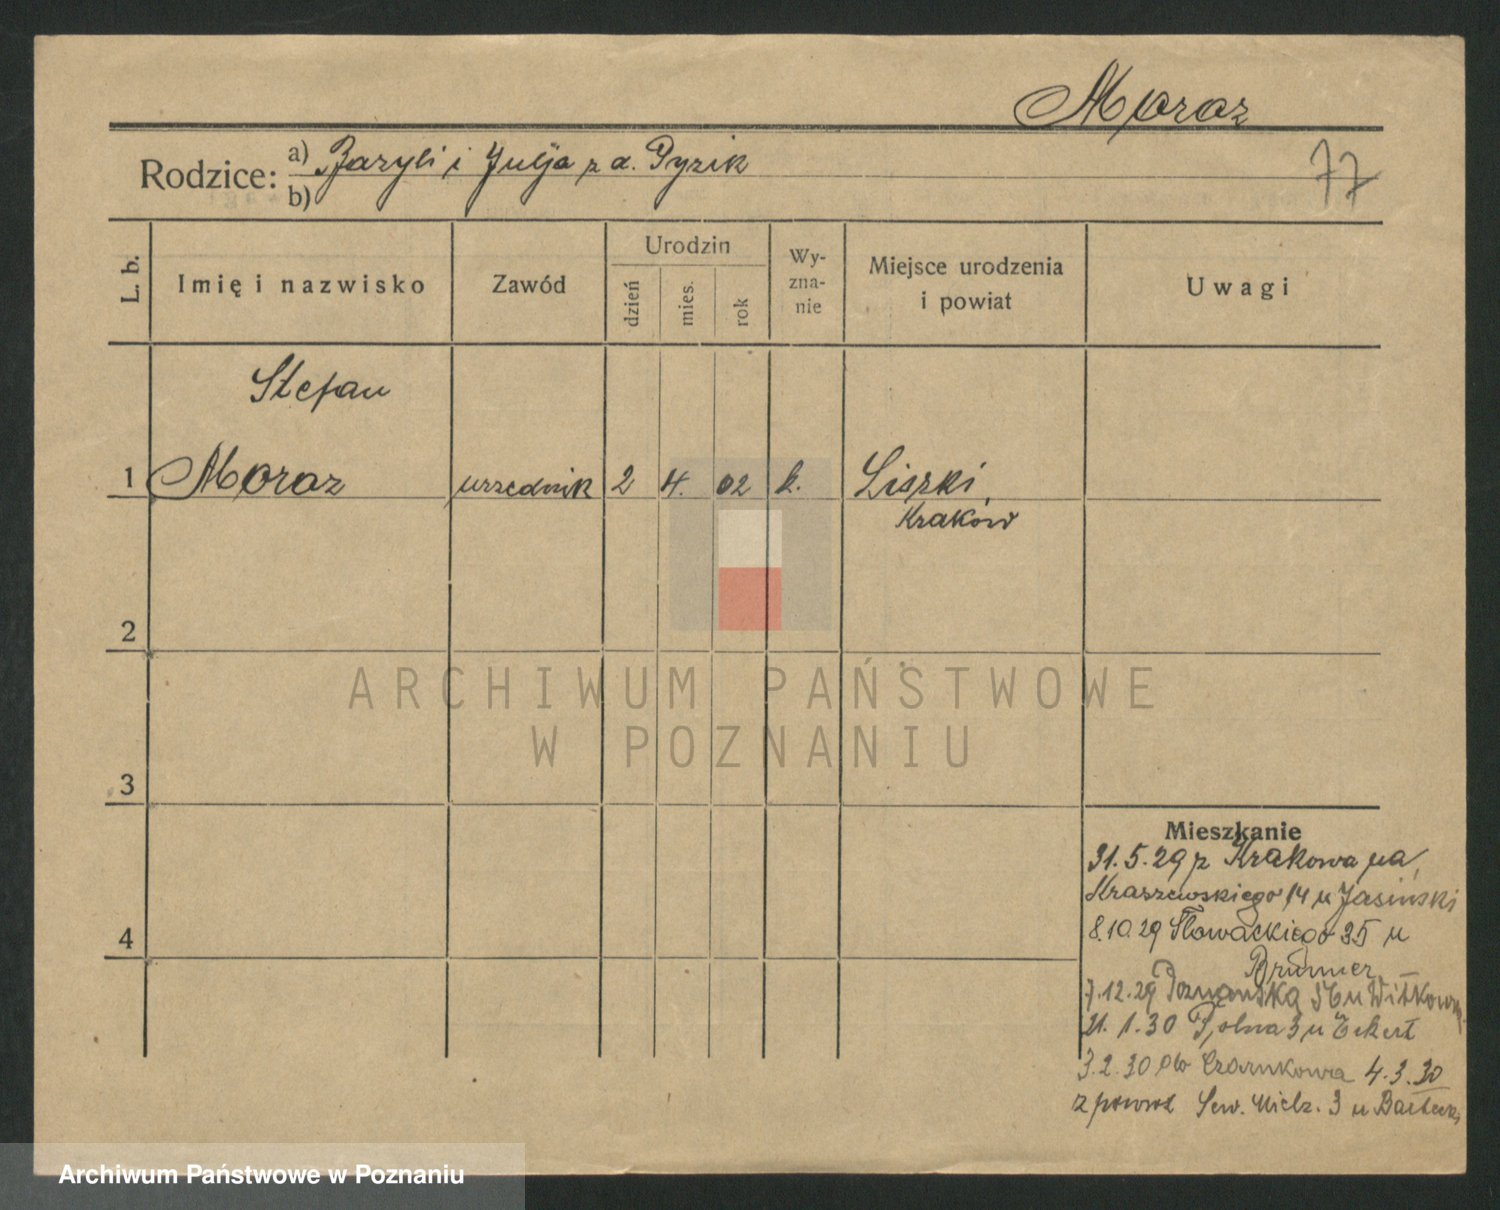 Moraz
77
Rodzice: a) Bazyli i Julja z d. Pyzik
b)
L. b.
Imię i nazwisko
Zawód
Urodzin
dzień
mies.
rok
Wy-
zna-
nie
Miejsce urodzenia
i powiat
Uwagi
Stefan
1 Moraz urzędnik 2 4. 02 k. Liszki
Kraków
2
ARCHIWUM PAŃSTWOWE
W POZNANIU
3
4
Mieszkanie
31.5.29 z Krakowa na
Kraszewskiego 14 u Jasiński
8.10.29 Słowackiego 35 u
Brunner
7.12.29 Poznańska u Witkowa
21.1.30 Polna 3 u Eckert
3.2.30 do Czarnkowa 4.3.30
z powrot Sew. Mielż. 3 u
Archiwum Państwowe w Poznaniu